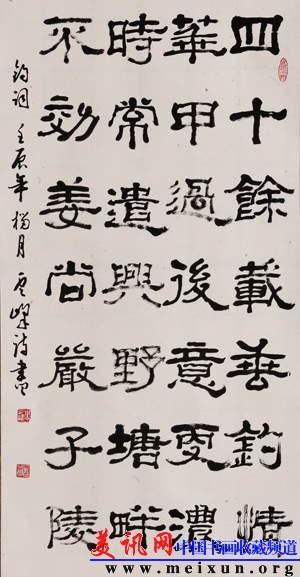 四十餘載垂釣情
華甲過後意更濃
時常遣興野塘畔
不効姜尚嚴子陵
釣詞 壬辰年 月 詩書
美讯网 中国书画收藏频道
www.meixun.org